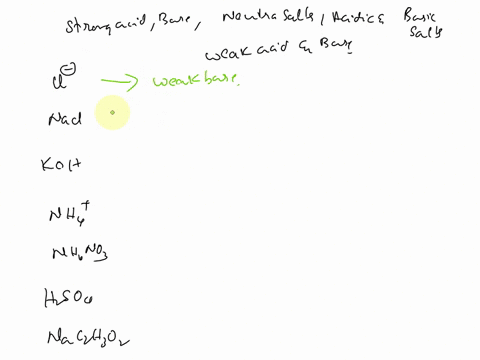 Strong acid, Base, Neutral Salts, Acidic & Basic Salts
weak acid & Base
Cl⊖ → weak base
NaCl
KOH
NH₄⁺
NH₄NO₃
H₂SO₄
NaC₂H₃O₂